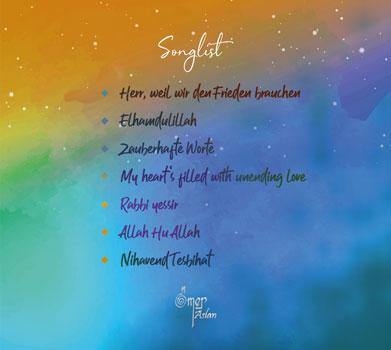 Songlist
Herr, weil wir den Frieden brauchen
Elhamdulillah
Zauberhafte Worte
My heart's filled with unending Love
Rabbi yessir
Allah Hu Allah
Nihavend Tesbihat
Ömer
Aslan